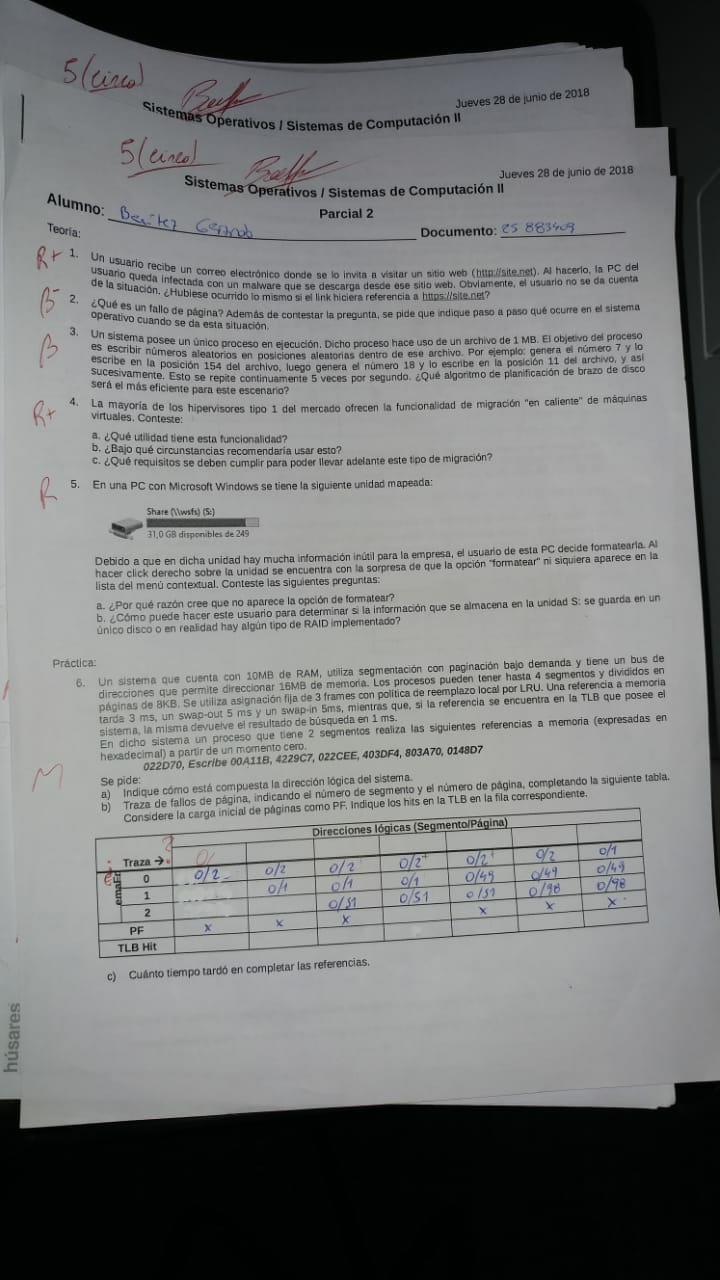 5 (cinco)
Jueves 28 de junio de 2018
Sistemas Operativos / Sistemas de Computación II
5 (cinco)
Jueves 28 de junio de 2018
Sistemas Operativos / Sistemas de Computación II
Parcial 2
Alumno: Benitez
Documento:
Teoría:
R+ 1. Un usuario recibe un correo electrónico donde se lo invita a visitar un sitio web (http://site.net). Al hacerlo, la PC del
usuario queda infectada con un malware que se descarga desde ese sitio web. Obviamente, el usuario no se da cuenta
de la situación. ¿Hubiese ocurrido lo mismo si el link hiciera referencia a https://site.net?
B- 2. ¿Qué es un fallo de página? Además de contestar la pregunta, se pide que indique paso a paso qué ocurre en el sistema
operativo cuando se da esta situación.
B 3. Un sistema posee un único proceso en ejecución. Dicho proceso hace uso de un archivo de 1 MB. El objetivo del proceso
es escribir números aleatorios en posiciones aleatorias dentro de ese archivo. Por ejemplo: genera el número 7 y lo
escribe en la posición 154 del archivo, luego genera el número 18 y lo escribe en la posición 11 del archivo, y así
sucesivamente. Esto se repite continuamente 5 veces por segundo. ¿Qué algoritmo de planificación de brazo de disco
será el más eficiente para este escenario?
R+ 4. La mayoría de los hipervisores tipo 1 del mercado ofrecen la funcionalidad de migración "en caliente" de máquinas
virtuales. Conteste:
a. ¿Qué utilidad tiene esta funcionalidad?
b. ¿Bajo qué circunstancias recomendaría usar esto?
c. ¿Qué requisitos se deben cumplir para poder llevar adelante este tipo de migración?
R 5. En una PC con Microsoft Windows se tiene la siguiente unidad mapeada:
Share (\\wsfs) (S:)
31,0 GB disponibles de 249
Debido a que en dicha unidad hay mucha información inútil para la empresa, el usuario de esta PC decide formatearla. Al
hacer click derecho sobre la unidad se encuentra con la sorpresa de que la opción "formatear" ni siquiera aparece en la
lista del menú contextual. Conteste las siguientes preguntas:
a. ¿Por qué razón cree que no aparece la opción de formatear?
b. ¿Cómo puede hacer este usuario para determinar si la información que se almacena en la unidad S: se guarda en un
único disco o en realidad hay algún tipo de RAID implementado?
Práctica:
6. Un sistema que cuenta con 10MB de RAM, utiliza segmentación con paginación bajo demanda y tiene un bus de
direcciones que permite direccionar 16MB de memoria. Los procesos pueden tener hasta 4 segmentos y divididos en
páginas de 8KB. Se utiliza asignación fija de 3 frames con política de reemplazo local por LRU. Una referencia a memoria
tarda 3 ms, un swap-out 5 ms y un swap-in 5ms, mientras que, si la referencia se encuentra en la TLB que posee el
sistema, la misma devuelve el resultado de búsqueda en 1 ms.
En dicho sistema un proceso que tiene 2 segmentos realiza las siguientes referencias a memoria (expresadas en
hexadecimal) a partir de un momento cero.
022D70, Escribe 00A11B, 4229C7, 022CEE, 403DF4, 803A70, 0148D7
M Se pide:
a) Indique cómo está compuesta la dirección lógica del sistema.
b) Traza de fallos de página, indicando el número de segmento y el número de página, completando la siguiente tabla.
Considere la carga inicial de páginas como PF. Indique los hits en la TLB en la fila correspondiente.
Direcciones lógicas (Segmento/Página)
Traza →
0 0/2 0/2 0/2 0/2 0/2 0/2 0/1
1 0/1 0/1 0/1 0/49 0/49 0/49
2 0/51 0/51 0/51 0/98 0/98
PF x x x x x x
TLB Hit
c) Cuánto tiempo tardó en completar las referencias.
húsares